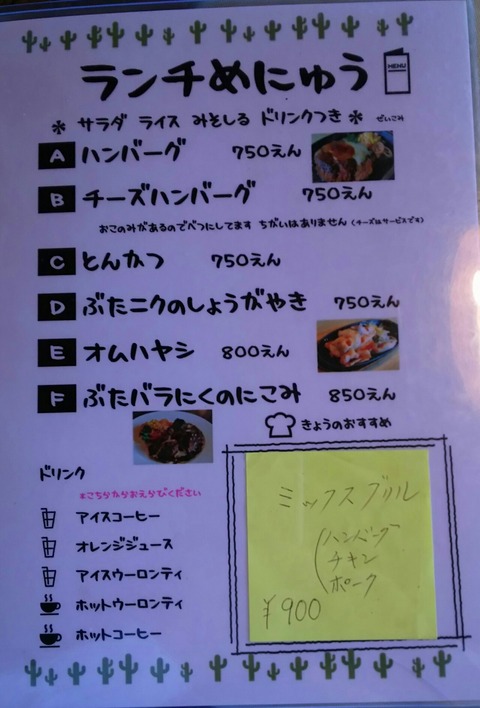 ランチめにゅう
MENU
* サラダ ライス みそしる ドリンクつき * ぜいこみ
A ハンバーグ 750えん
B チーズハンバーグ 750えん
おこのみがあるのでべつにしてます ちがいはありません (チーズはサービスです)
C とんかつ 750えん
D ぶたニクのしょうがやき 750えん
E オムハヤシ 800えん
F ぶたバラにくのにこみ 850えん
きょうのおすすめ
ミックスグリル
(ハンバーグ
チキン
ポーク
¥900
ドリンク
*こちらからおえらびください
アイスコーヒー
オレンジジュース
アイスウーロンティ
ホットウーロンティ
ホットコーヒー